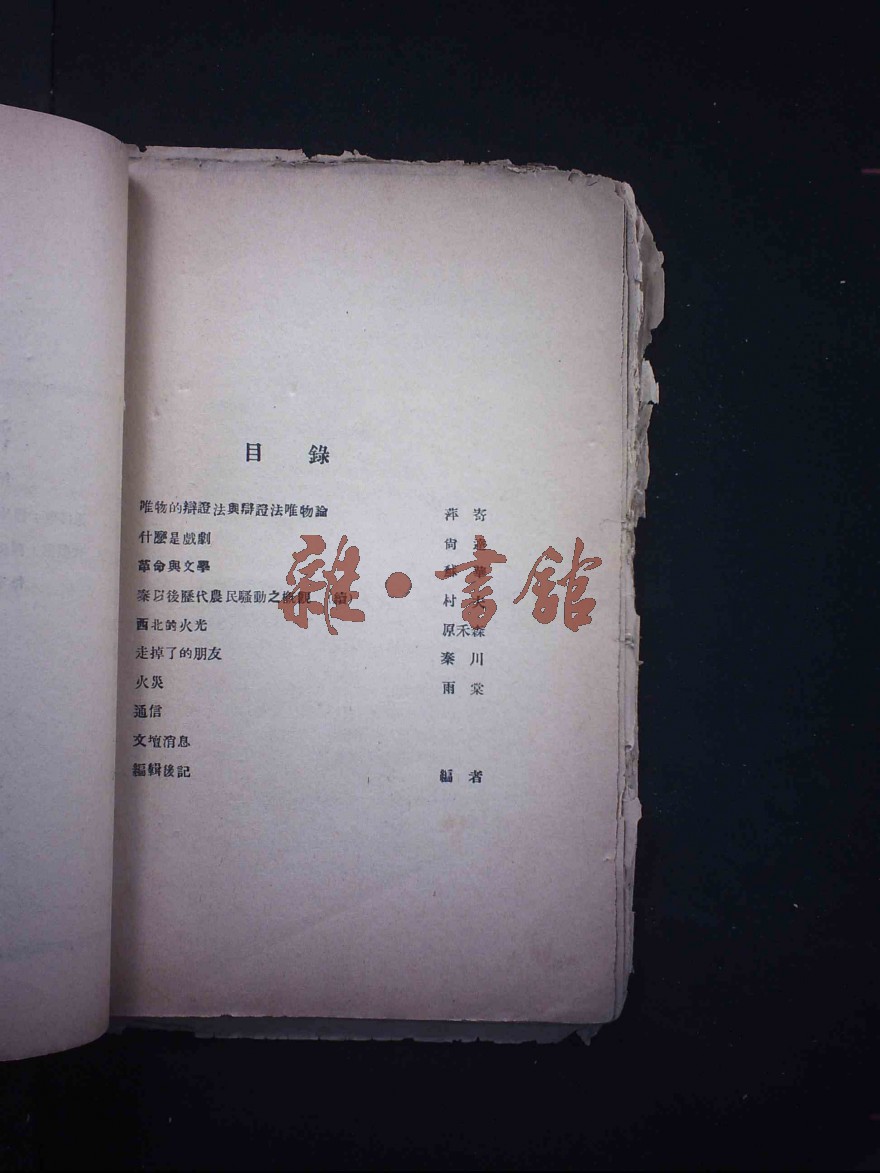 目錄
唯物的辯證法與辯證法唯物論 萍寄
什麼是戲劇 尙
革命與文學 蘇
秦以後歷代農民騷動之概觀(續) 村夫
西北的火光 原禾森
走掉了的朋友 秦川
火災 雨棠
通信
文壇消息
編輯後記 編者
雜·書館